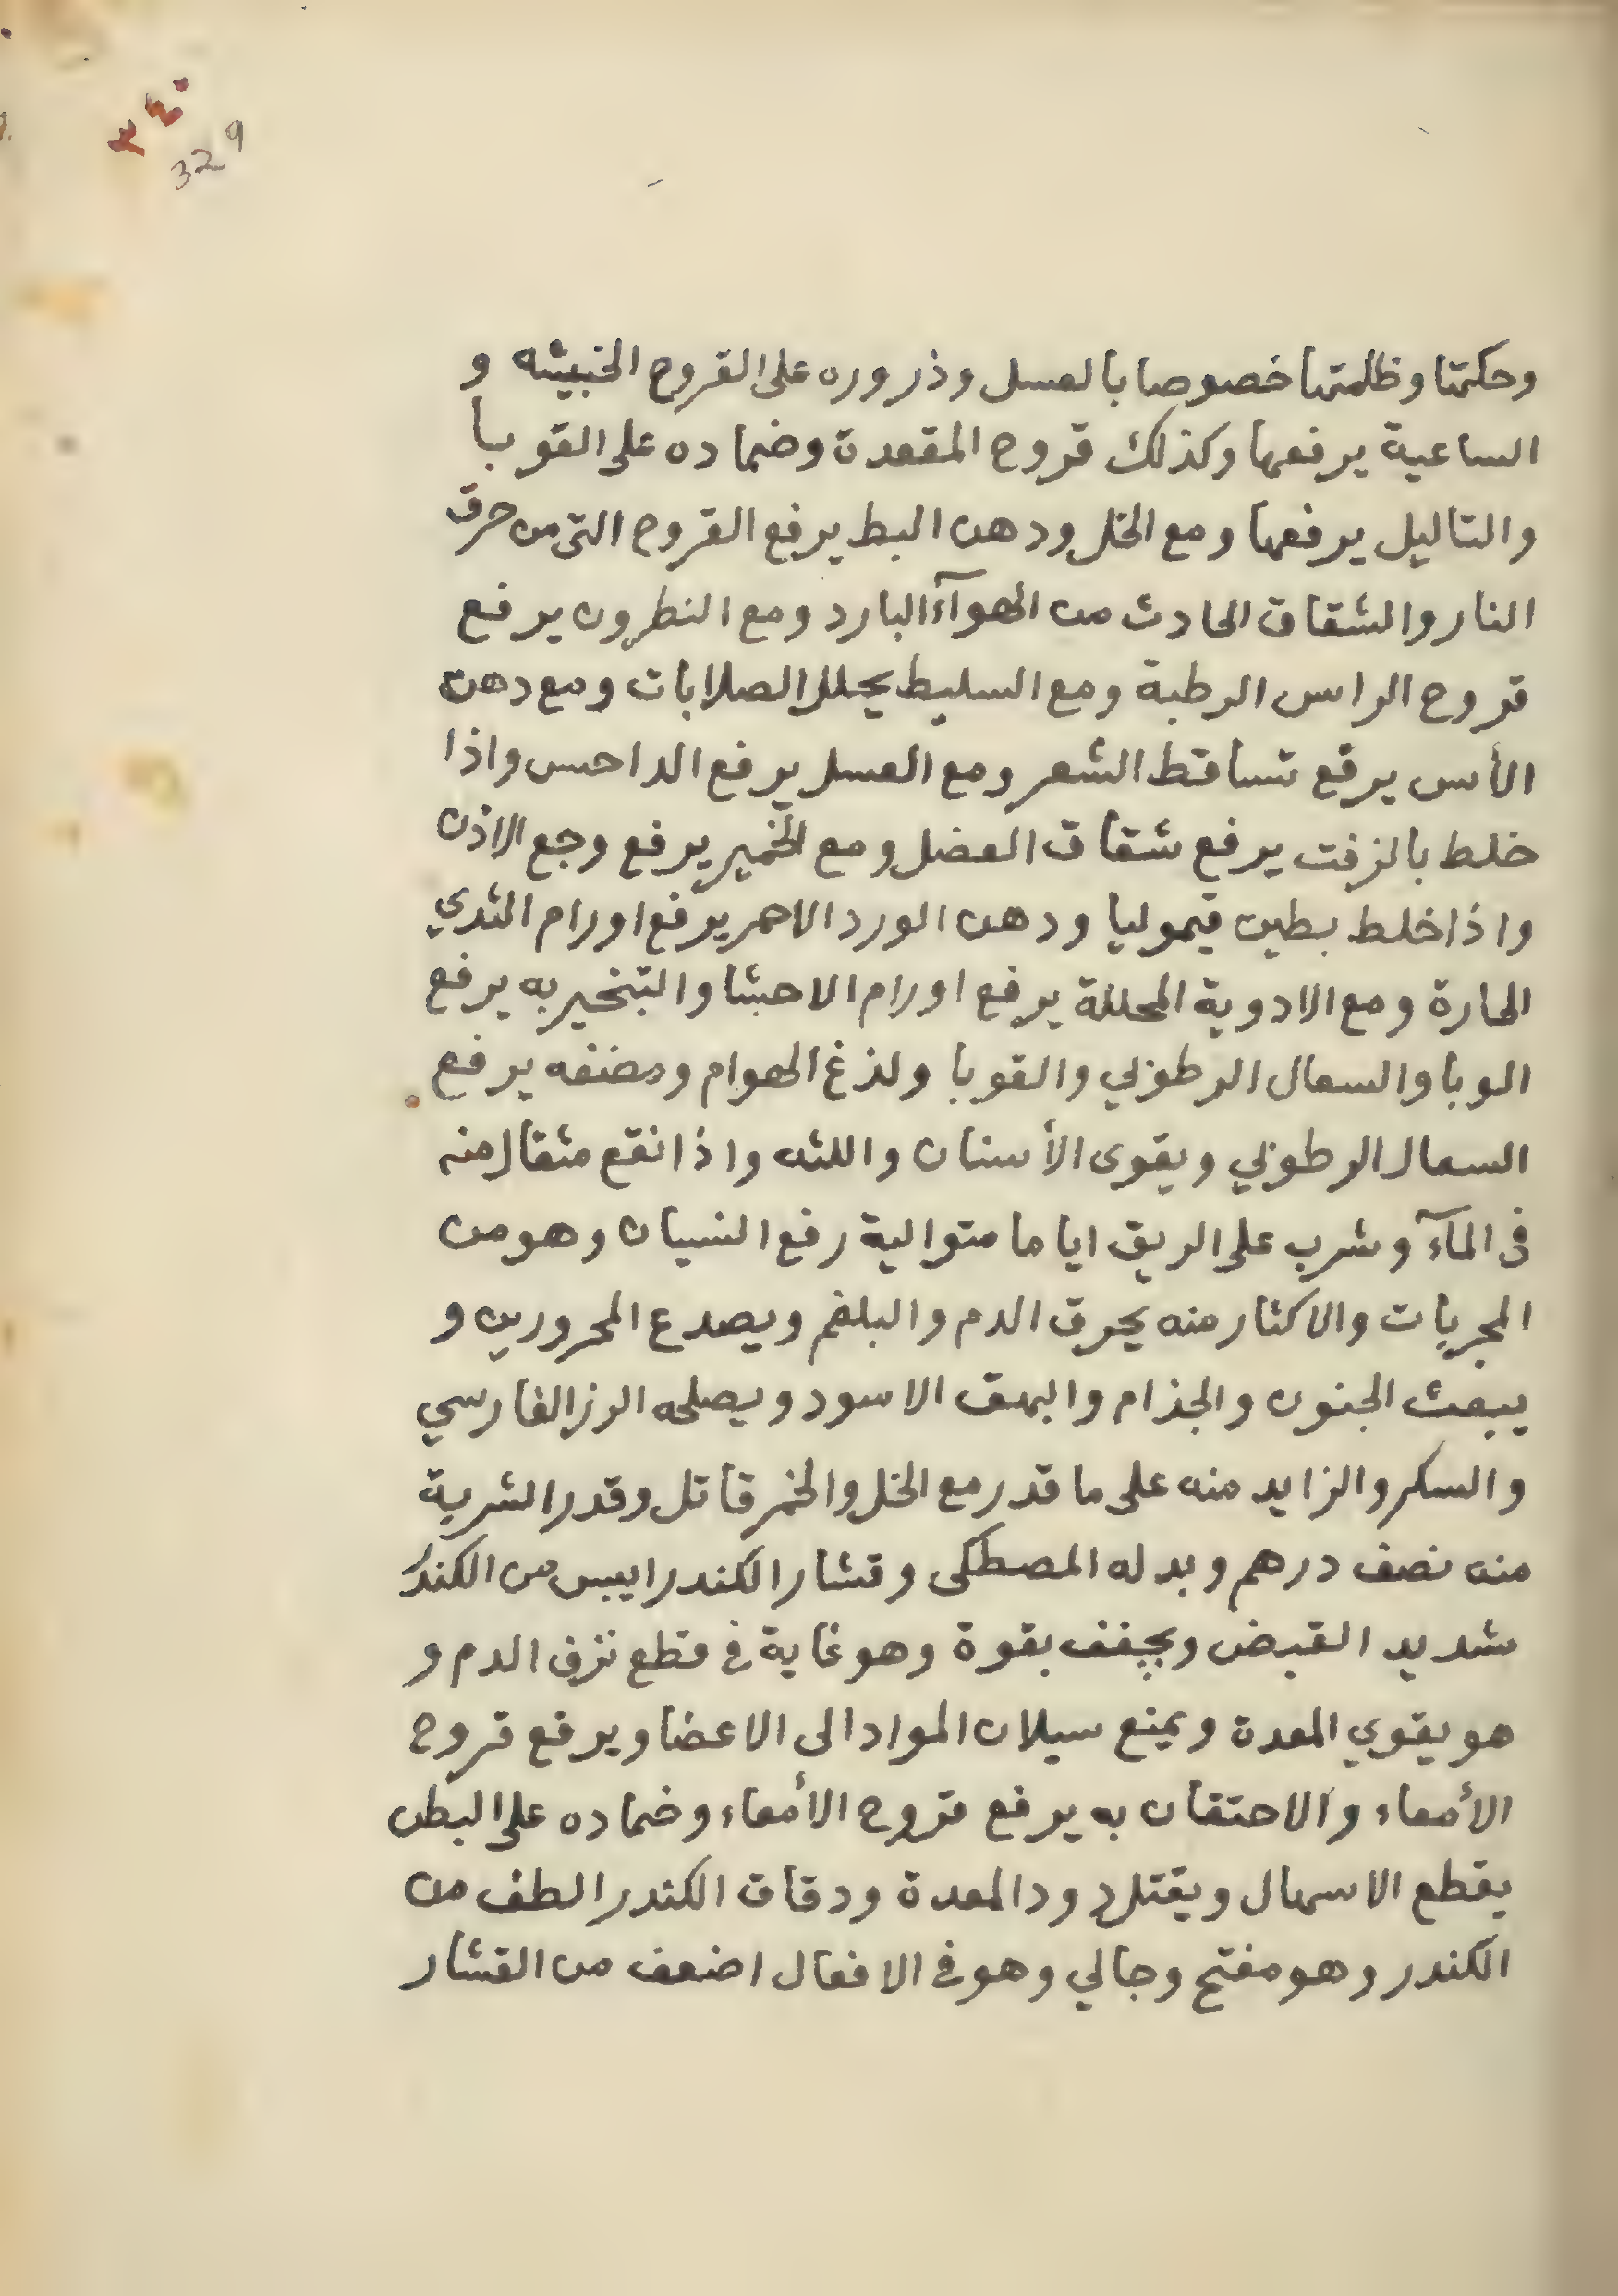 ٣٤٠
329
وحكمتا وظلمتها خصوصا بالعسل وذروره على القروح الخبيثه و
الساعية يرفعها وكذلك قروح المقعدة وضماده على القوبا
والتاليل يرفعها ومع الخل ودهن البط يرفع القروح التى من حرق
النار والشقاق الحادث من الهوآء البارد ومع النطرون يرفع
قروح الراس الرطبة ومع السليط يحلل الصلابات ومع دهن
الأس يرفع تساقط الشعر ومع العسل يرفع الداحس واذا
خلط بالزفت يرفع شقاق العضل ومع الخمير يرفع وجع الاذن
واذا خلط بطين قيموليا ودهن الورد الاحمر يرفع اورام الثدي
الحارة ومع الادوية المحللة يرفع اورام الاحشا والتبخير به يرفع
الوبا والسعال الرطوبي والقوبا ولذغ الهوام ومضغه يرفع
السعال الرطوبي ويقوى الأسنان واللثه واذا نقع مثقال منه
فى المآء وشرب على الريق اياما متوالية رفع النسيان وهو من
المجربات والاكثار منه يحرق الدم والبلغم ويصدع المحرورين و
يبعث الجنون والجذام والبهق الاسود ويصلحه الرز الفارسي
والسكر والزايد منه على ما قدر مع الخل والخمر قاتل وقدر الشربة
منه نصف درهم وبدله المصطكى وقشار الكندر ايبس من الكندر
شديد القبض ويجفف بقوة وهو غاية فى قطع نزف الدم و
هو يقوي المعدة ويمنع سيلان المواد الى الاعضا ويرفع قروح
الأمعاء والاحتقان به يرفع قروح الأمعاء وضماده على البطن
يقطع الاسهال ويقتل دود المعدة ودقاق الكندر الطف من
الكندر وهو مفتح وجالي وهو فى الافعال اضعف من القشار